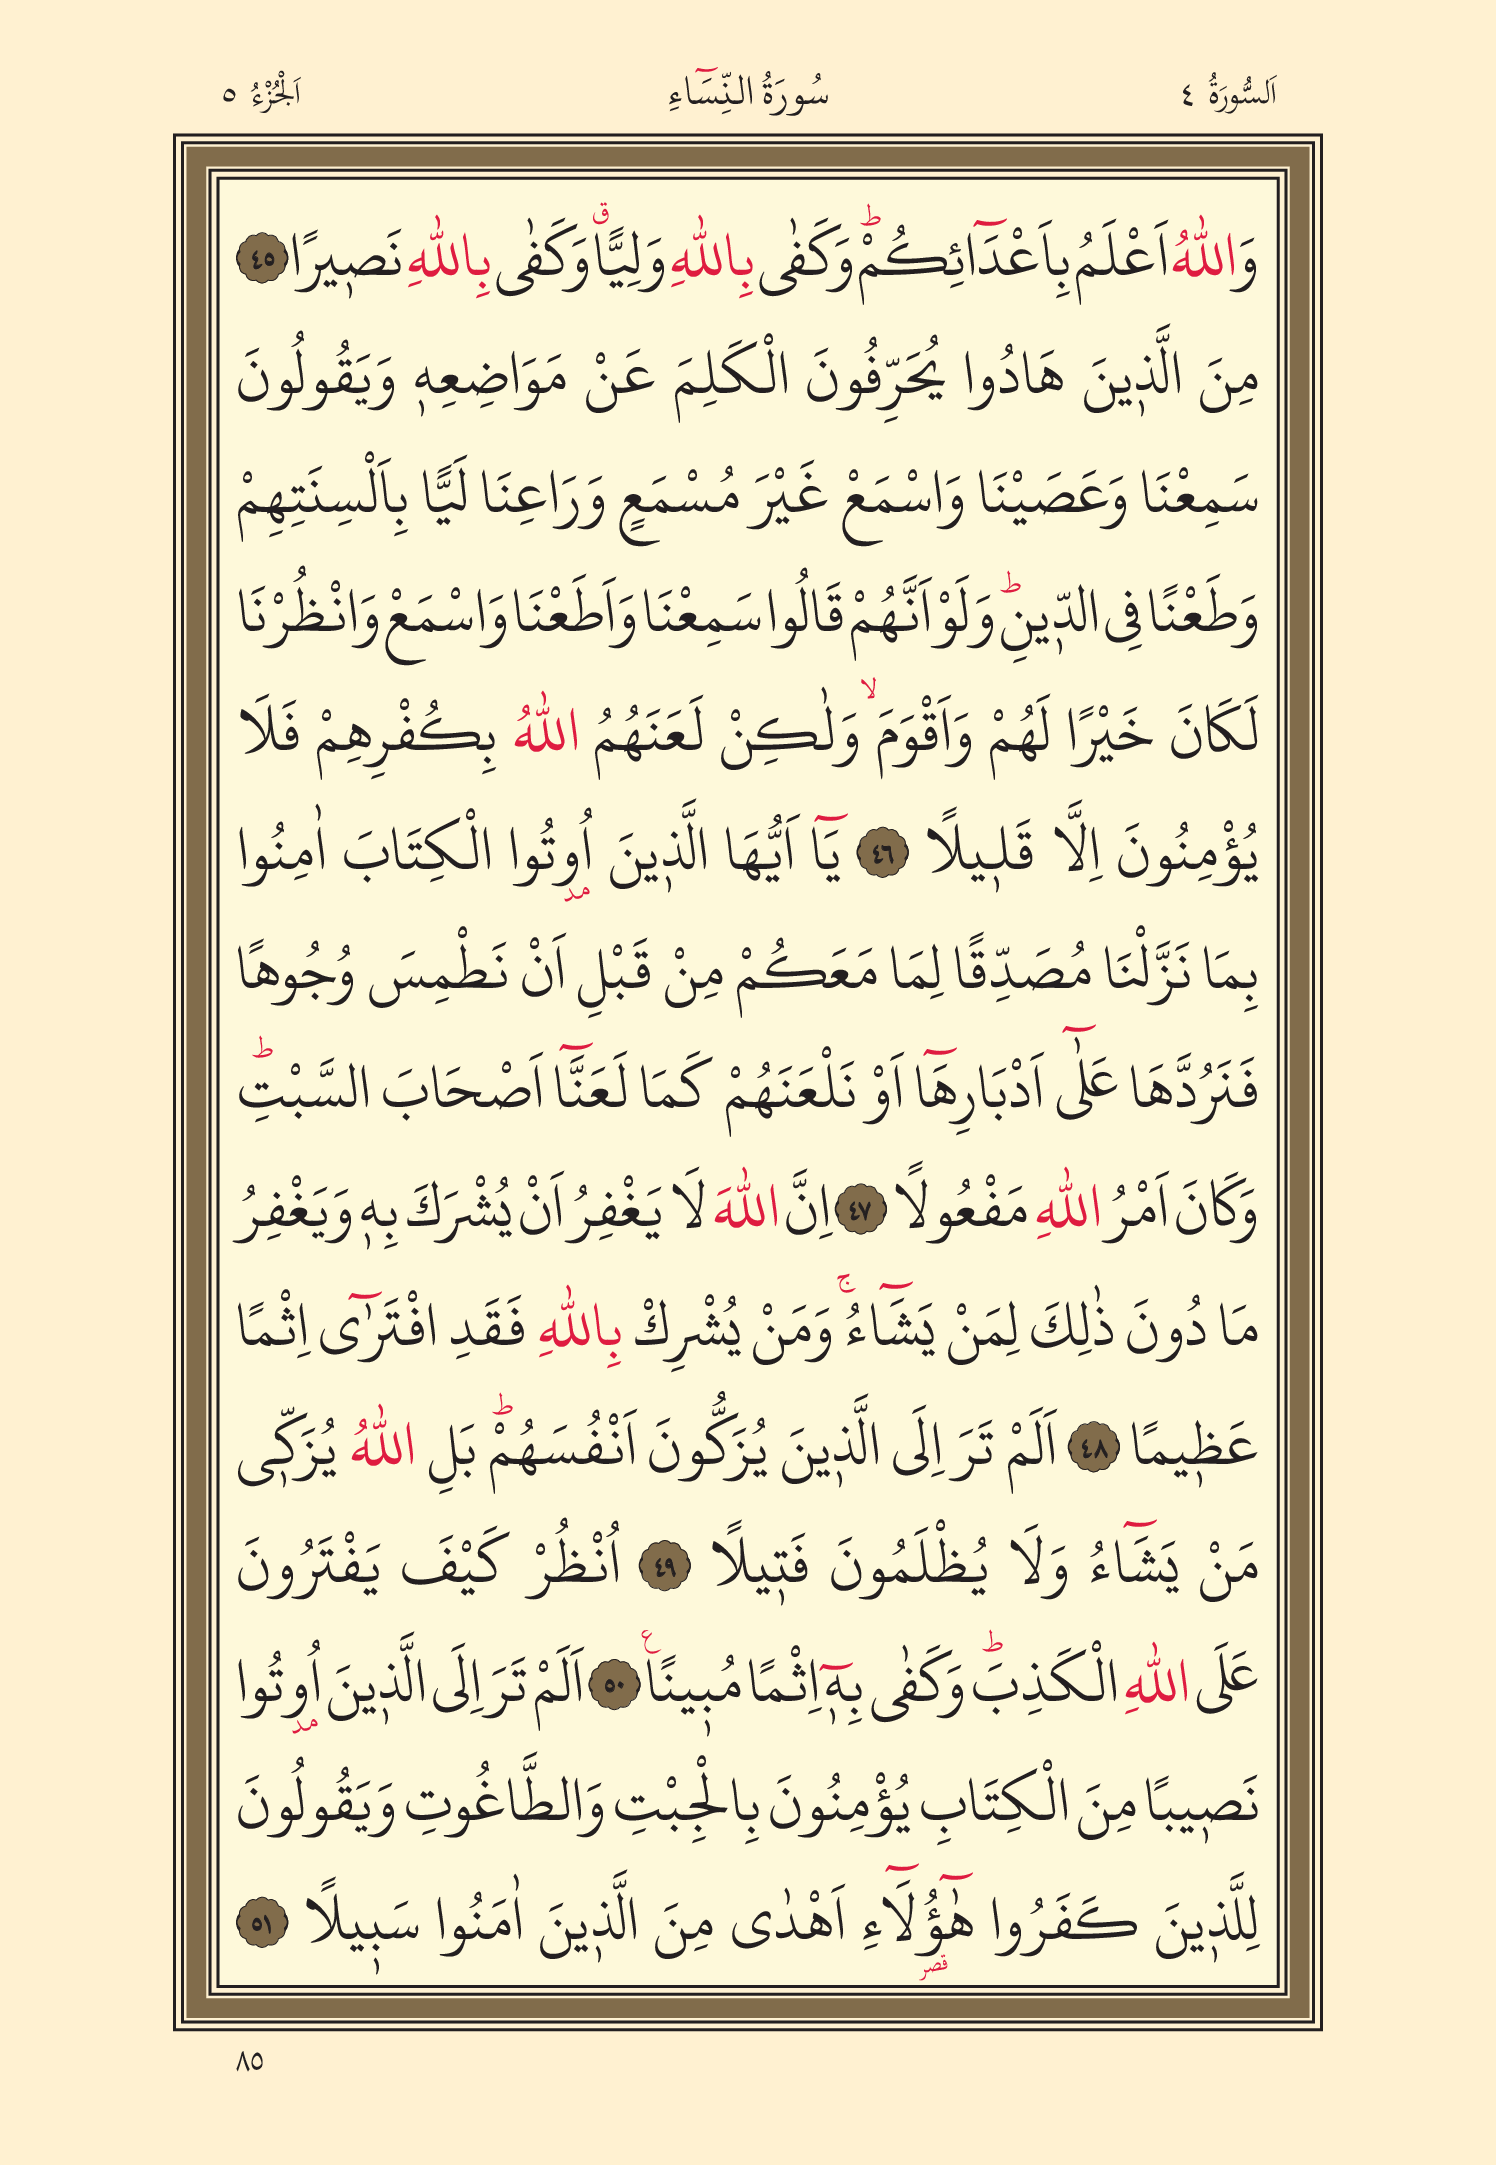 اَلسُّورَةُ ٤ سُورَةُ النِّسَٓاءِ اَلْجُزْءُ ٥
وَاللّٰهُ اَعْلَمُ بِاَعْدَٓائِكُمْؕ وَكَفٰى بِاللّٰهِ وَلِيًّاۗ وَكَفٰى بِاللّٰهِ نَصٖيرًا ٤٥
مِنَ الَّذٖينَ هَادُوا يُحَرِّفُونَ الْكَلِمَ عَنْ مَوَاضِعِهٖ وَيَقُولُونَ
سَمِعْنَا وَعَصَيْنَا وَاسْمَعْ غَيْرَ مُسْمَعٍ وَرَاعِنَا لَيًّا بِاَلْسِنَتِهِمْ
وَطَعْنًا فِى الدّٖينِؕ وَلَوْ اَنَّهُمْ قَالُوا سَمِعْنَا وَاَطَعْنَا وَاسْمَعْ وَانْظُرْنَا
لَكَانَ خَيْرًا لَهُمْ وَاَقْوَمَۙ وَلٰكِنْ لَعَنَهُمُ اللّٰهُ بِكُفْرِهِمْ فَلَا
يُؤْمِنُونَ اِلَّا قَلٖيلًا ٤٦ يَٓا اَيُّهَا الَّذٖينَ اُوتُوا الْكِتَابَ اٰمِنُوا
مد
بِمَا نَزَّلْنَا مُصَدِّقًا لِمَا مَعَكُمْ مِنْ قَبْلِ اَنْ نَطْمِسَ وُجُوهًا
فَنَرُدَّهَا عَلٰٓى اَدْبَارِهَٓا اَوْ نَلْعَنَهُمْ كَمَا لَعَنَّٓا اَصْحَابَ السَّبْتِؕ
وَكَانَ اَمْرُ اللّٰهِ مَفْعُولًا ٤٧ اِنَّ اللّٰهَ لَا يَغْفِرُ اَنْ يُشْرَكَ بِهٖ وَيَغْفِرُ
مَا دُونَ ذٰلِكَ لِمَنْ يَشَٓاءُۚ وَمَنْ يُشْرِكْ بِاللّٰهِ فَقَدِ افْتَرٰٓى اِثْمًا
عَظٖيمًا ٤٨ اَلَمْ تَرَ اِلَى الَّذٖينَ يُزَكُّونَ اَنْفُسَهُمْؕ بَلِ اللّٰهُ يُزَكّٖى
مَنْ يَشَٓاءُ وَلَا يُظْلَمُونَ فَتٖيلًا ٤٩ اُنْظُرْ كَيْفَ يَفْتَرُونَ
عَلَى اللّٰهِ الْكَذِبَؕ وَكَفٰى بِهٖٓ اِثْمًا مُبٖينًا ع ٥٠ اَلَمْ تَرَ اِلَى الَّذٖينَ اُوتُوا
مد
نَصٖيبًا مِنَ الْكِتَابِ يُؤْمِنُونَ بِالْجِبْتِ وَالطَّاغُوتِ وَيَقُولُونَ
لِلَّذٖينَ كَفَرُوا هٰٓؤُ۬لَٓاءِ اَهْدٰى مِنَ الَّذٖينَ اٰمَنُوا سَبٖيلًا ٥١
قصر
٨٥